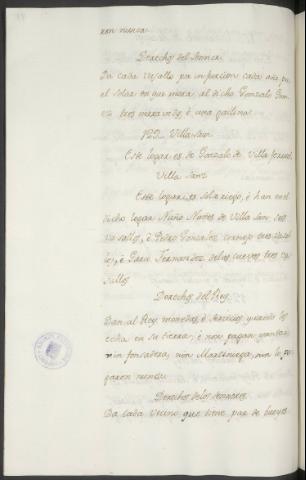 non nunca.
Derechos del Señor.
Da cada vasallo por infurcion cada año por
el solar en que mora al dicho Gonzalo Gon-
zalez tres maravedis, é una gallina.
122 Villasur
Este logar es de Gonzalo de Villa
Villa Sanz
Este logar es solariego, é han en el
dicho logar Nuño Nuñez de Villa San tres
vasallos, é Pedro Gonzalez cornejo tres vasa-
llos, é Garci Fernandez de las cuevas tres va-
sallos
Derechos del Rey.
Dan al Rey monedas, é servicios quando los
echa en su tierra, é non pagan yantar,
nin fonsadera, nin Martiniega, nin lo pa-
garon nunca.
Derechos de los Señores.
Da cada vecino que tiene par de bueyes